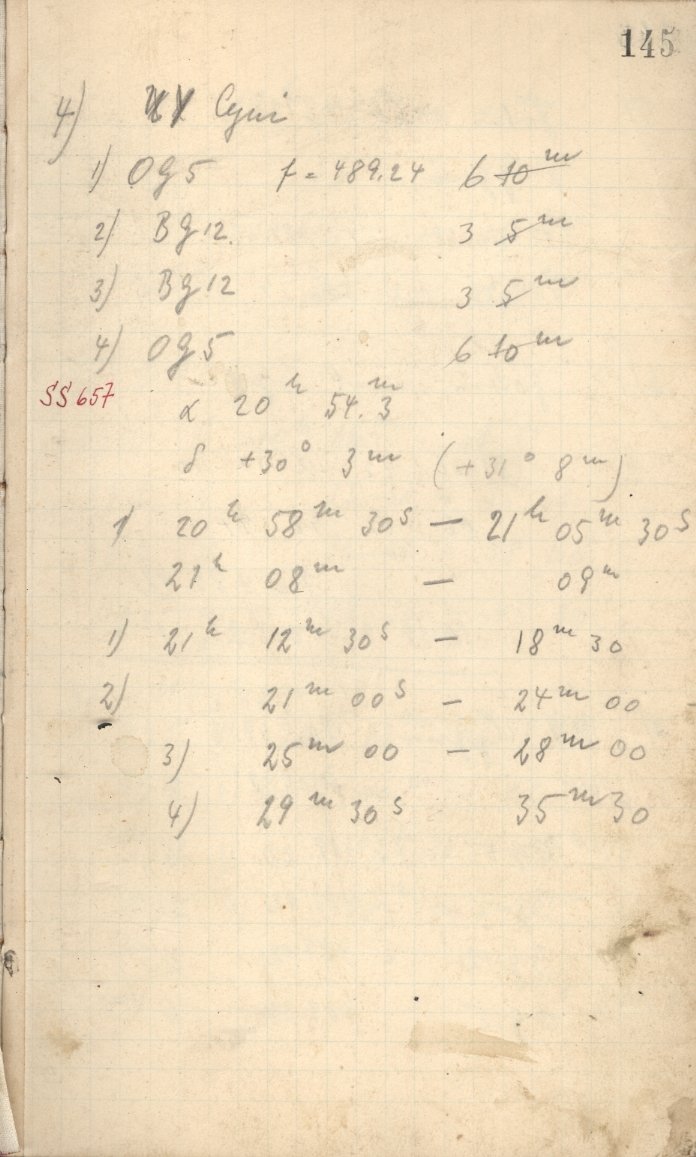 145
4) UX Cygni
1) Og 5 f = 489.24 6 10 m
2) Bg 12. 3 5 m
3) Bg 12 3 5 m
4) Og 5 6 10 m
SS 657
α 20 h 54. m 3
δ +30° 3 m (+31° 8 m)
1) 20 h 58 m 30 s — 21 h 05 m 30 s
21 h 08 m — 09 m
1) 21 h 12 m 30 s — 18 m 30
2) 21 m 00 s — 24 m 00
3) 25 m 00 — 28 m 00
4) 29 m 30 s 35 m 30